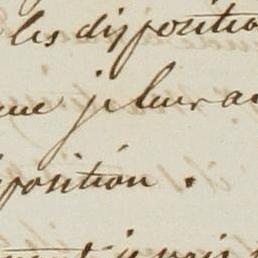 les dispositio
ue je leur a
position .